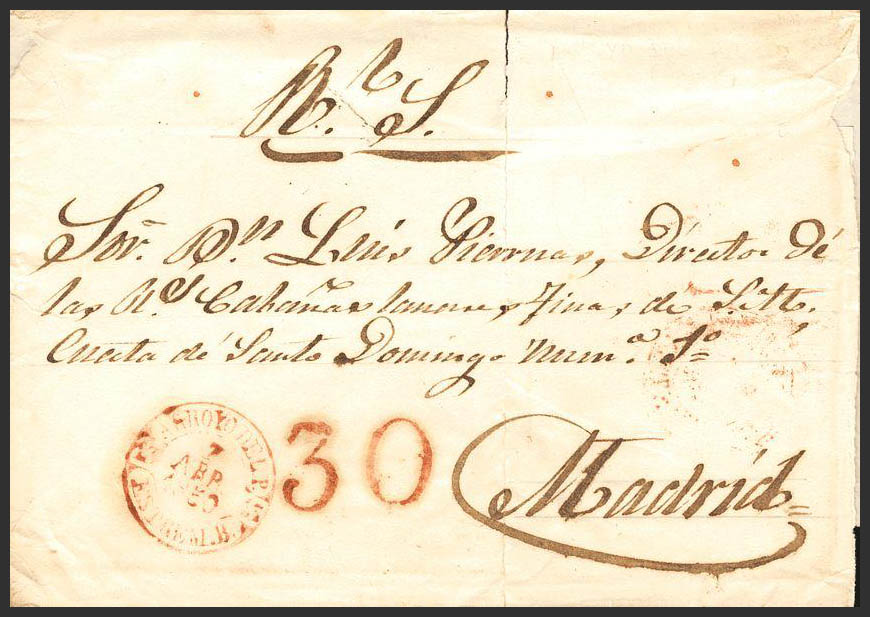 Rl. S.
Sor. Dn. Luis Piernas, Director dé
las Rs. Cabañas lanares finas de S. M.
Cuesta dé Santo Domingo Numº. 5º
ARROYO DEL P.
7
ABR
1850
ESTREM.B.
30
Madrid=